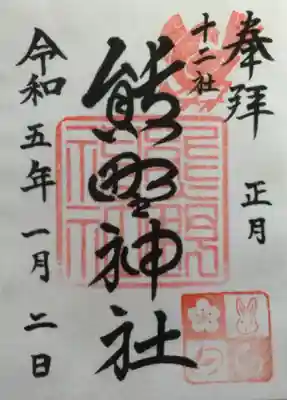 奉拝
正月
十二社
熊野神社
令和五年一月二日